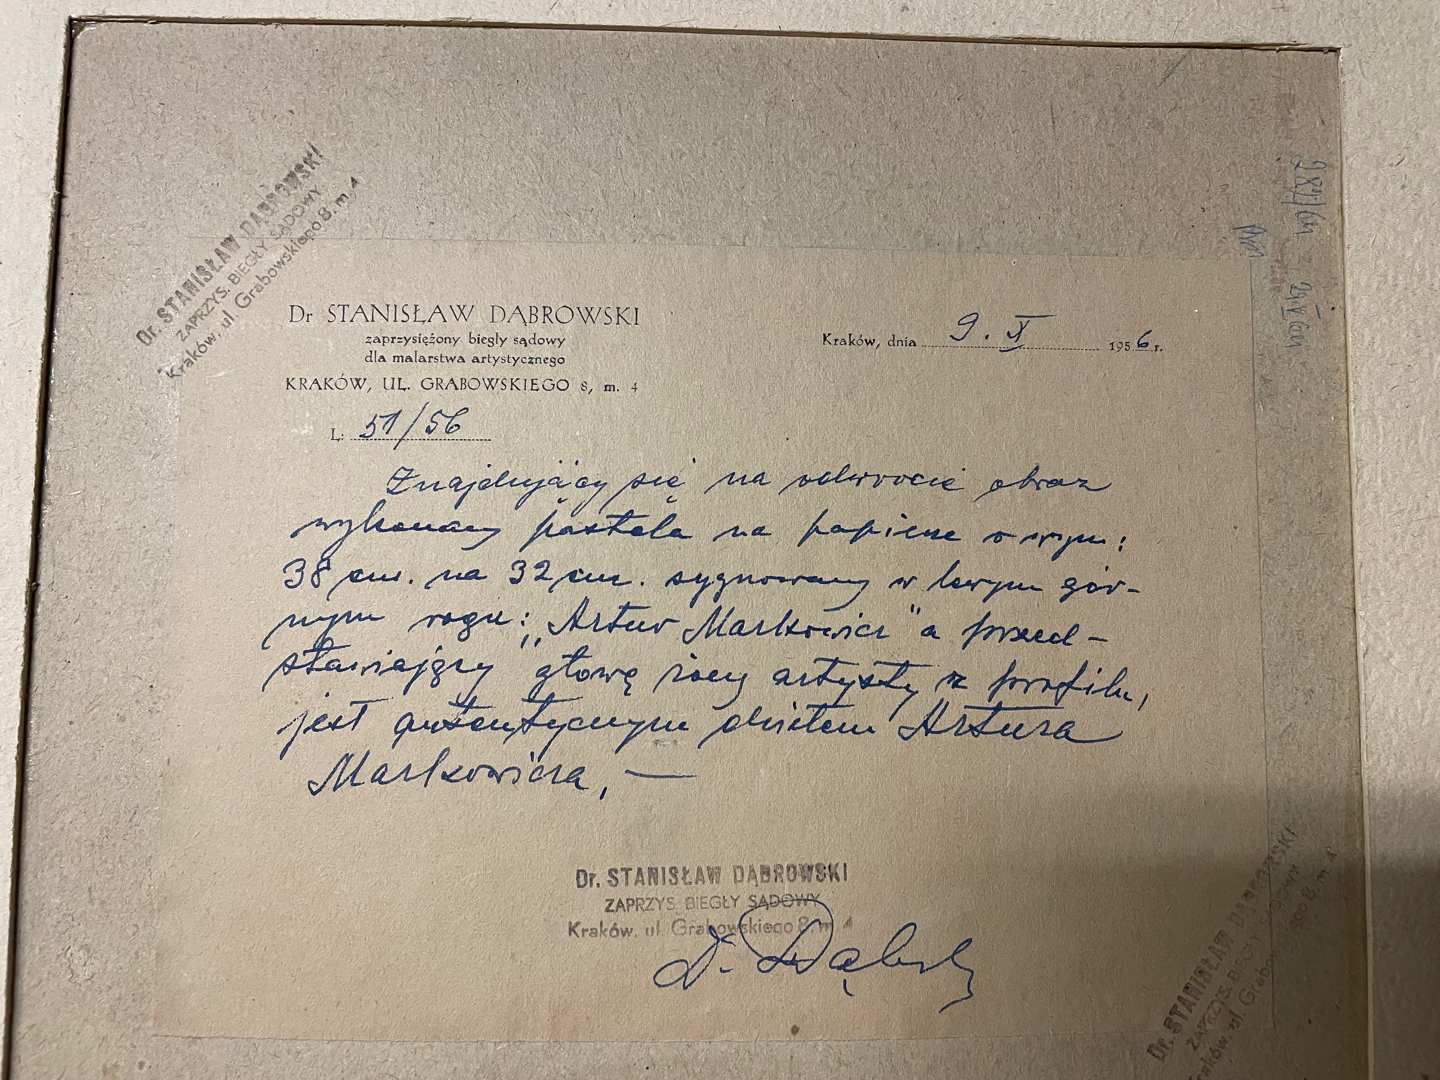 Dr. STANISŁAW DĄBROWSKI
ZAPRZYS. BIEGŁY SĄDOWY
Kraków, ul. Grabowskiego 8. m. 4
Dr STANISŁAW DĄBROWSKI
zaprzysiężony biegły sądowy
dla malarstwa artystycznego
KRAKÓW, UL. GRABOWSKIEGO 8, m. 4
Kraków, dnia 9. X 1956 r.
L: 51/56
Znajdujący się na odwrocie obraz
wykonany pastelą na papierze o wym:
38 cm. na 32 cm. sygnowany w lewym gór-
nym rogu: „Artur Markowicz" a przed-
stawiający głowę żony artysty z profilu,
jest autentycznym dziełem Artura
Markowicza, —
Dr. STANISŁAW DĄBROWSKI
ZAPRZYS. BIEGŁY SĄDOWY
Kraków. ul. Grabowskiego 8. m 4
Dr. STANISŁAW DĄBROWSKI
ZAPRZYS. BIEGŁY SĄDOWY
Kraków, ul. Grabowskiego 8. m. 4